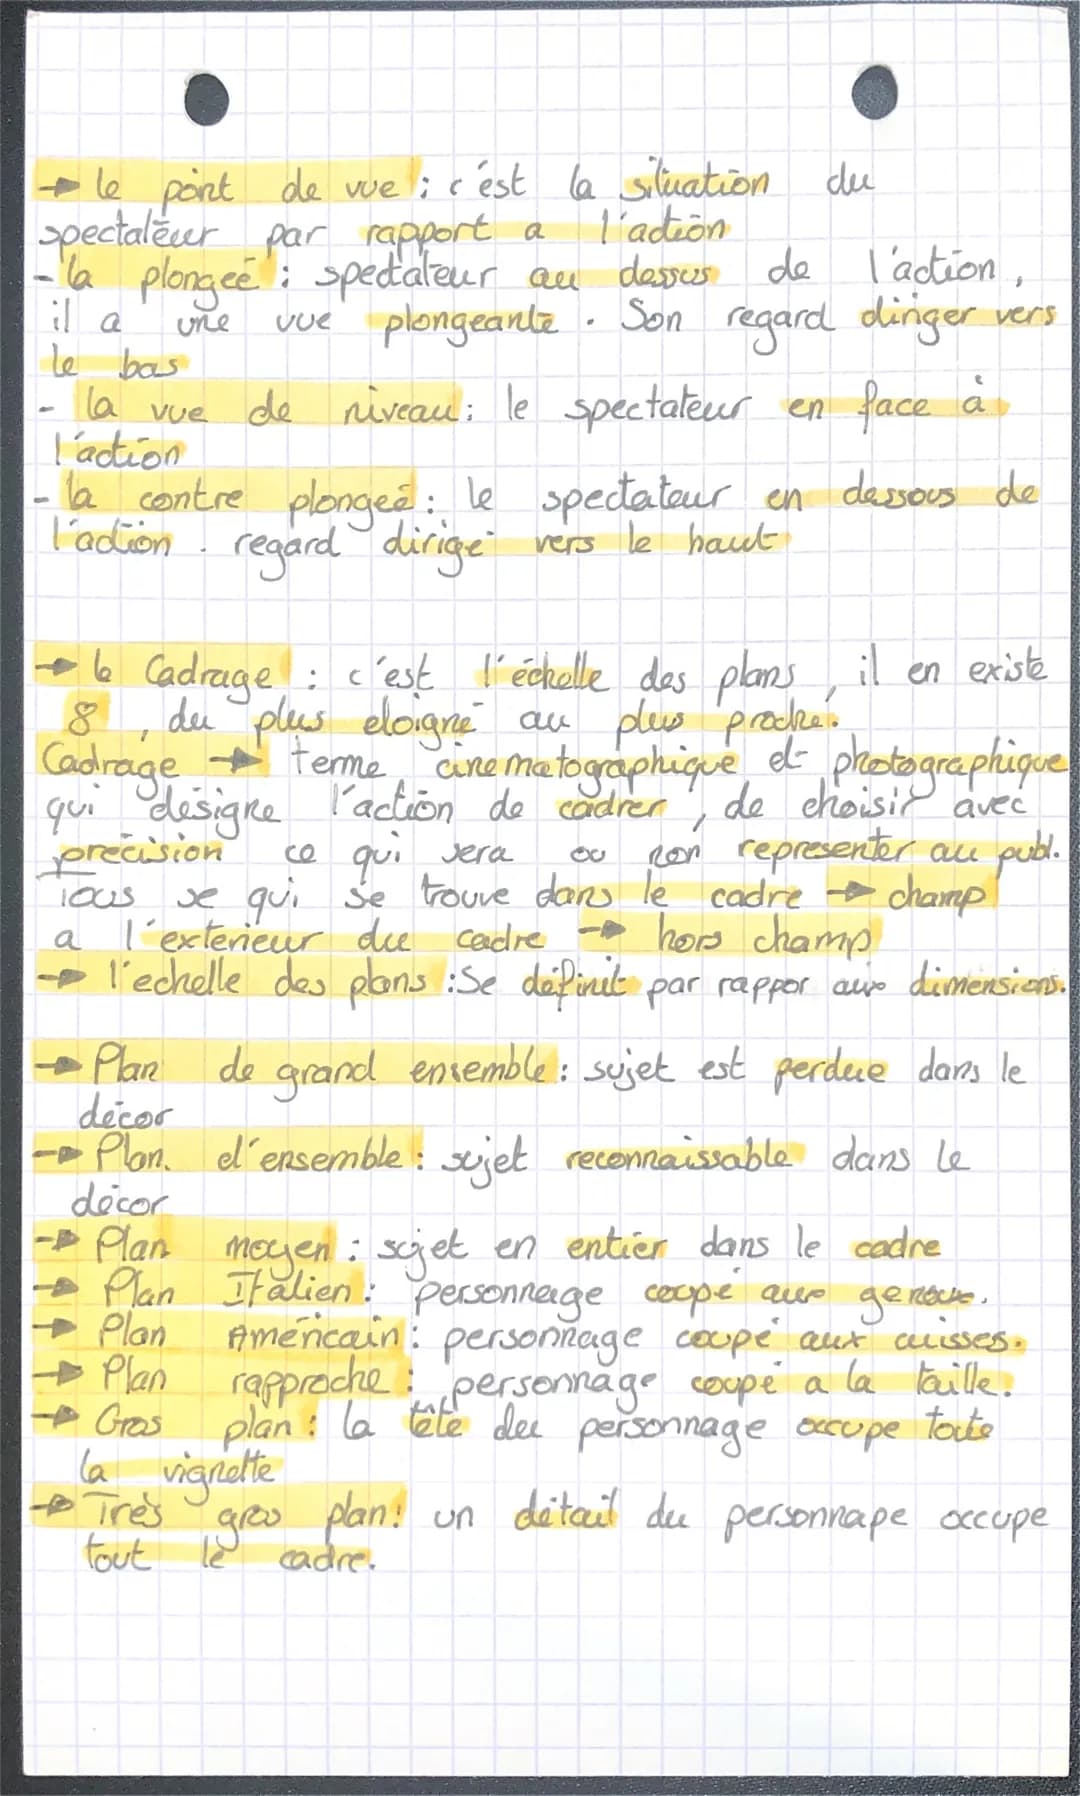 → le point de vue : c'est la situation du
spectateur par rapport a l'action
- la plongeé : spectateur au dessus de l'action,
il a une vue plongeante. Son regard diriger vers
le bas
- la vue de niveau : le spectateur en face à
l'action
- la contre plongeé : le spectateur en dessous de
l'action. regard dirigé vers le haut
→ le Cadrage : c'est l'échelle des plans, il en existe
8, du plus eloigné au plus proche.
Cadrage → terme cinematographique et photographique
qui désigne l'action de cadrer, de choisir avec
précision ce qui sera ou non representer au publ.
Tous se qui se trouve dans le cadre → champ
a l'exterieur du cadre → hors champ
→ l'echelle des plans : Se définit par rappor aux dimensions.
→ Plan de grand ensemble : sujet est perdue dans le
décor
→ Plan. d'ensemble : sujet reconnaissable dans le
décor
→ Plan moyen : sujet en entier dans le cadre
→ Plan Italien : personnage coupé aux genoux.
→ Plan Américain : personnage coupé aux cuisses.
→ Plan rapproche : personnage coupé a la taille.
→ Gros plan : la tête du personnage occupe toute
la vignette
→ Très gros plan : un détail du personnape occupe
tout le cadre.